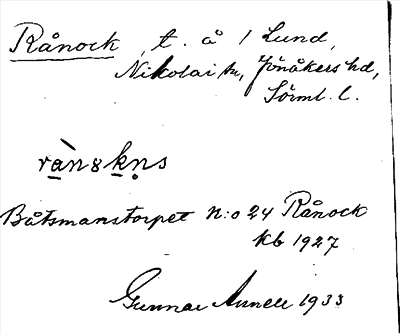 Rånock, t. å / Lund,
Nikolai sn, Jönåkers hd,
Sörml. l.
rànskns
Båtsmanstorpet N:o 24 Rånock
kb 1927
Gunnar Annell 1933